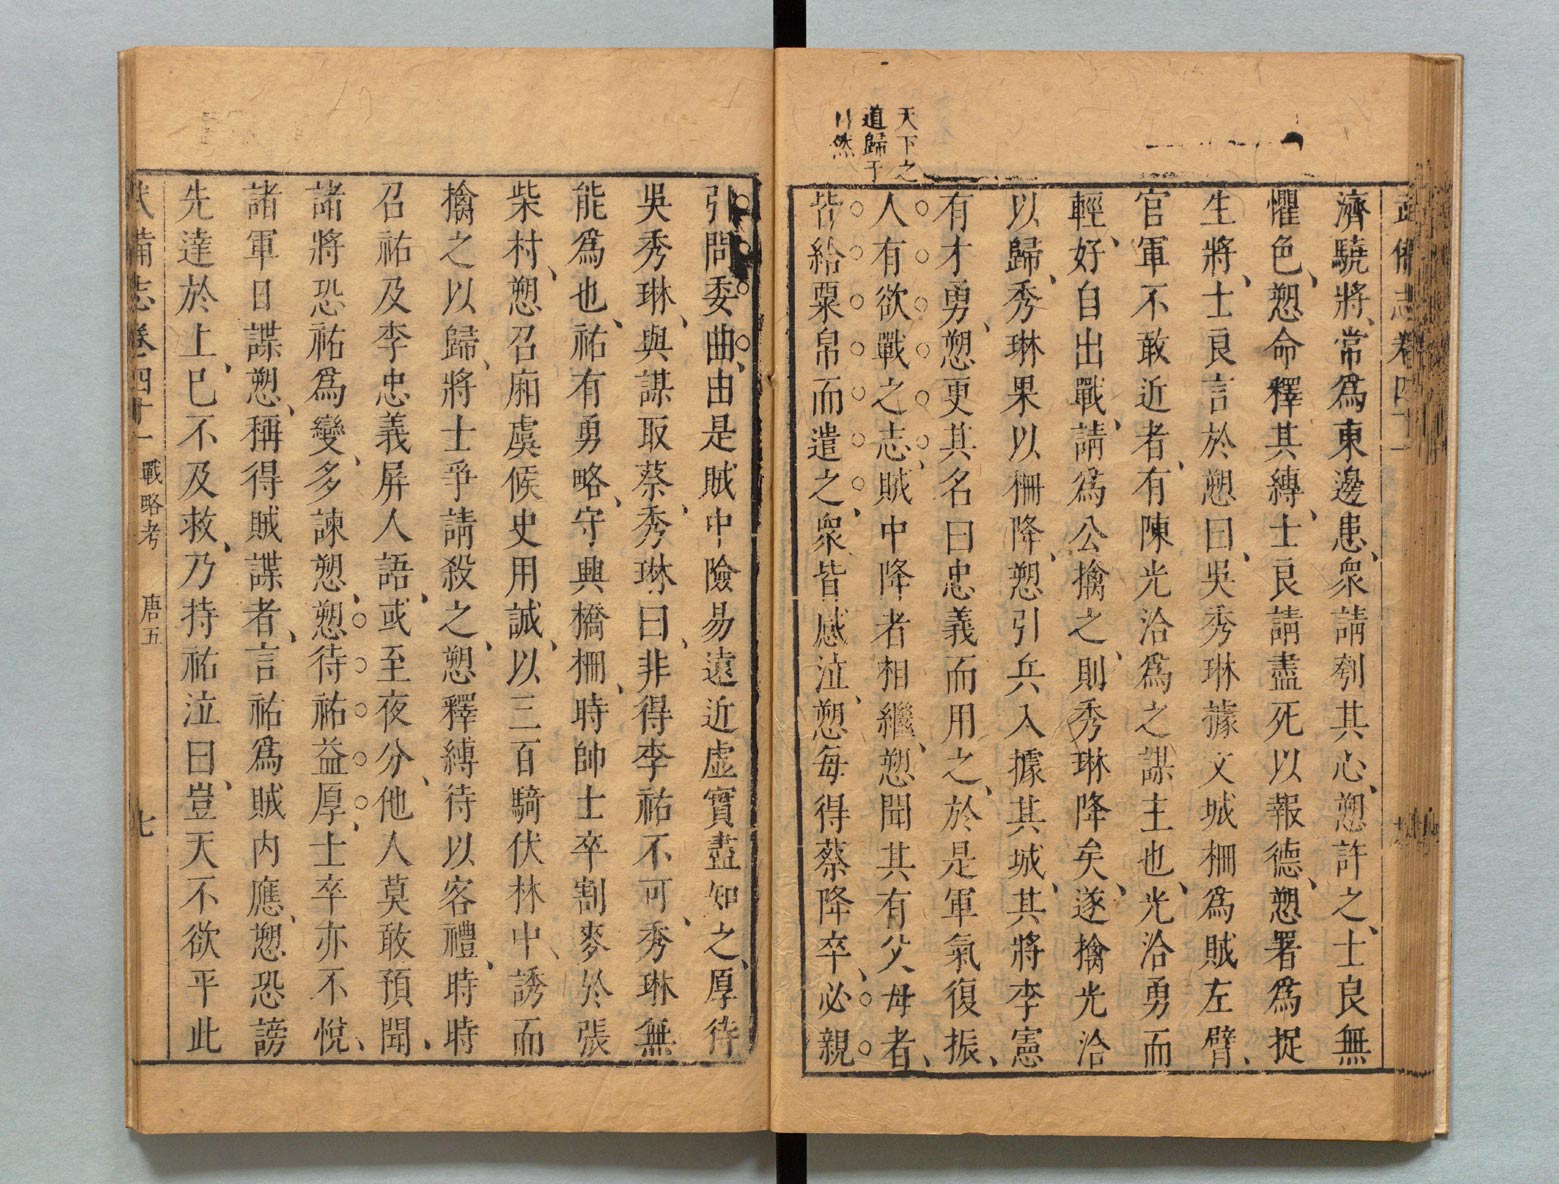 武備志卷四十一
濟驍將、常爲東邊患、衆請刳其心、愬許之、士良無
懼色、愬命釋其縛、士良請盡死以報德、愬署爲捉
生將、士良言於愬曰、吳秀琳據文城柵爲賊左臂、
官軍不敢近者、有陳光洽爲之謀主也、光洽勇而
輕、好自出戰、請爲公擒之、則秀琳降矣、遂擒光洽
以歸、秀琳果以柵降、愬引兵入據其城、其將李憲
有才勇、愬更其名曰忠義而用之、於是軍氣復振、
人有欲戰之志、賊中降者相繼、愬聞其有父母者、
皆給粟帛而遣之、衆皆感泣、愬每得蔡降卒、必親
天下之
道歸于
自然
引問委曲、由是賊中險易遠近虛實盡知之、厚待
吳秀琳、與謀取蔡、秀琳曰、非得李祐不可、秀琳無
能爲也、祐有勇略、守興橋柵、時帥士卒割麥於張
柴村、愬召廂虞候史用誠、以三百騎伏林中、誘而
擒之以歸、將士爭請殺之、愬釋縛待以客禮、時時
召祐及李忠義屏人語、或至夜分、他人莫敢預聞、
諸將恐祐爲變、多諫愬、愬待祐益厚、士卒亦不悅、
諸軍日諜愬、稱得賊諜者、言祐爲賊内應、愬恐謗
先達於上、已不及救、乃持祐泣曰、豈天不欲平此
武備志卷四十一 戰略考 唐五 七